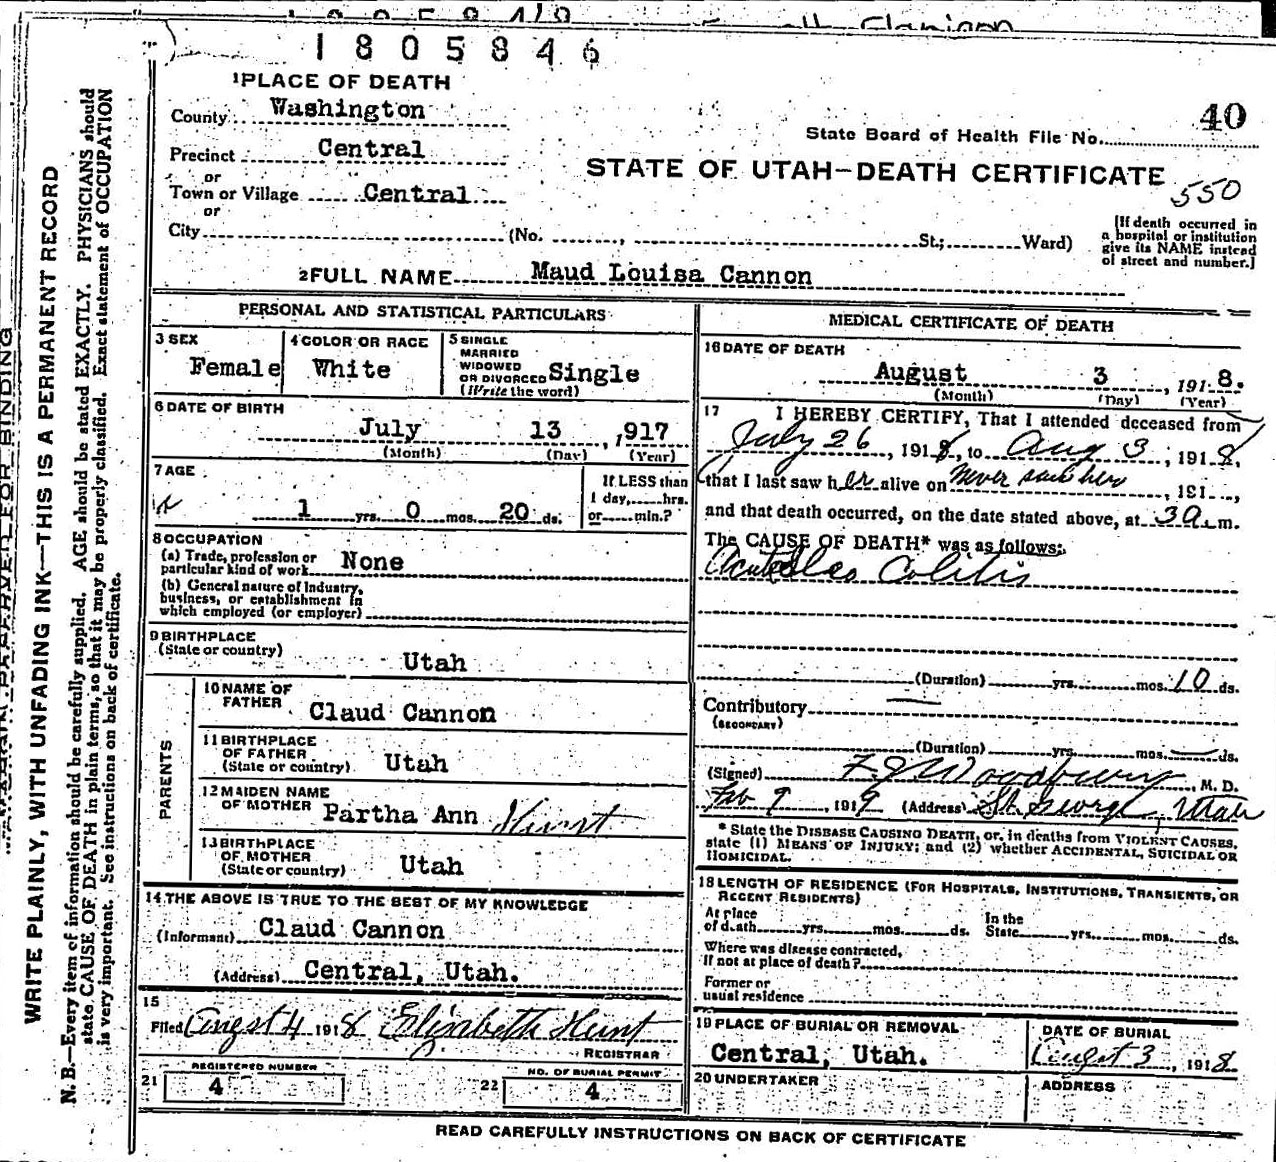 1805846
1 PLACE OF DEATH
County Washington
Precinct Central
or
Town or Village Central
or
City (No. , St.; Ward)
40
State Board of Health File No.
STATE OF UTAH—DEATH CERTIFICATE
550
[If death occurred in
a hospital or institution
give its NAME instead
of street and number.]
2 FULL NAME Maud Louisa Cannon
PERSONAL AND STATISTICAL PARTICULARS
3 SEX
Female
4 COLOR OR RACE
White
5 SINGLE
MARRIED
WIDOWED
OR DIVORCED Single
(Write the word)
6 DATE OF BIRTH
July 13, 1917
(Month) (Day) (Year)
7 AGE
1 yrs. 0 mos. 20 ds.
If LESS than
1 day, hrs.
or min.?
8 OCCUPATION
(a) Trade, profession or
particular kind of work None
(b) General nature of industry,
business, or establishment in
which employed (or employer)
9 BIRTHPLACE
(State or country)
Utah
PARENTS
10 NAME OF
FATHER
Claud Cannon
11 BIRTHPLACE
OF FATHER
(State or country) Utah
12 MAIDEN NAME
OF MOTHER Partha Ann Hunt
13 BIRTHPLACE
OF MOTHER
(State or country) Utah
14 THE ABOVE IS TRUE TO THE BEST OF MY KNOWLEDGE
(Informant) Claud Cannon
(Address) Central, Utah.
15
Filed Augst 4 1918 Elizabeth Hunt
REGISTRAR
21 REGISTERED NUMBER
4
22 NO. OF BURIAL PERMIT
4
MEDICAL CERTIFICATE OF DEATH
16 DATE OF DEATH
August 3, 1918.
(Month) (Day) (Year)
17 I HEREBY CERTIFY, That I attended deceased from
July 26, 1918, to Aug 3, 1918,
that I last saw her alive on never saw her, 191 ,
and that death occurred, on the date stated above, at 3 a. m.
The CAUSE OF DEATH* was as follows:
Acute Ileo Colitis
(Duration) yrs. mos. 10 ds.
Contributory —
(SECONDARY)
(Duration) yrs. mos. — ds.
(Signed) F J Woodbury, M. D.
Feb 9, 1919 (Address) St. George, Utah
* State the DISEASE CAUSING DEATH, or, in deaths from VIOLENT CAUSES,
state (1) MEANS OF INJURY; and (2) whether ACCIDENTAL, SUICIDAL OR
HOMICIDAL.
18 LENGTH OF RESIDENCE (FOR HOSPITALS, INSTITUTIONS, TRANSIENTS, OR
RECENT RESIDENTS)
At place
of death yrs. mos. ds. In the
State yrs. mos. ds.
Where was disease contracted,
if not at place of death?
Former or
usual residence
19 PLACE OF BURIAL OR REMOVAL
Central, Utah.
DATE OF BURIAL
Augst 3, 1918
20 UNDERTAKER
ADDRESS
READ CAREFULLY INSTRUCTIONS ON BACK OF CERTIFICATE
WRITE PLAINLY, WITH UNFADING INK—THIS IS A PERMANENT RECORD
N. B.—Every item of information should be carefully supplied. AGE should be stated EXACTLY. PHYSICIANS should
state CAUSE OF DEATH in plain terms, so that it may be properly classified. Exact statement of OCCUPATION
is very important. See instructions on back of certificate.